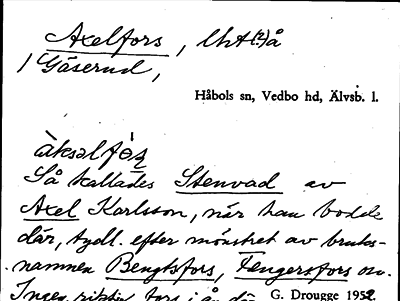 Axelfors, lht(?)å
/ Gäserud,
Håbols sn, Vedbo hd, Älvsb. l.
Så kallades Stenvad av
Axel Karlsson, när han bodde
där, tydl. efter mönstret av bruks-
namnen Bengtsfors, Fengersfors osv.
Ingen riktig fors i ån där
G. Drougge 1952